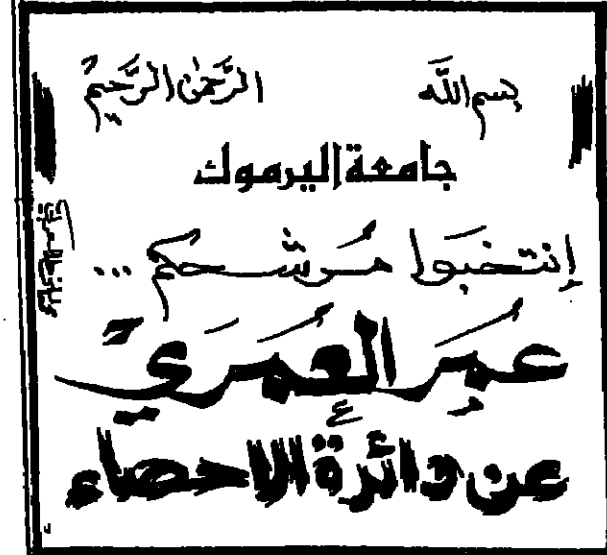 بسم الله الرَّحمٰن الرَّحيم
جامعة اليرموك
إنتخبوا مُرشّحكم ...
عمُر العُمَريّ
عن دائرة الاحصاء